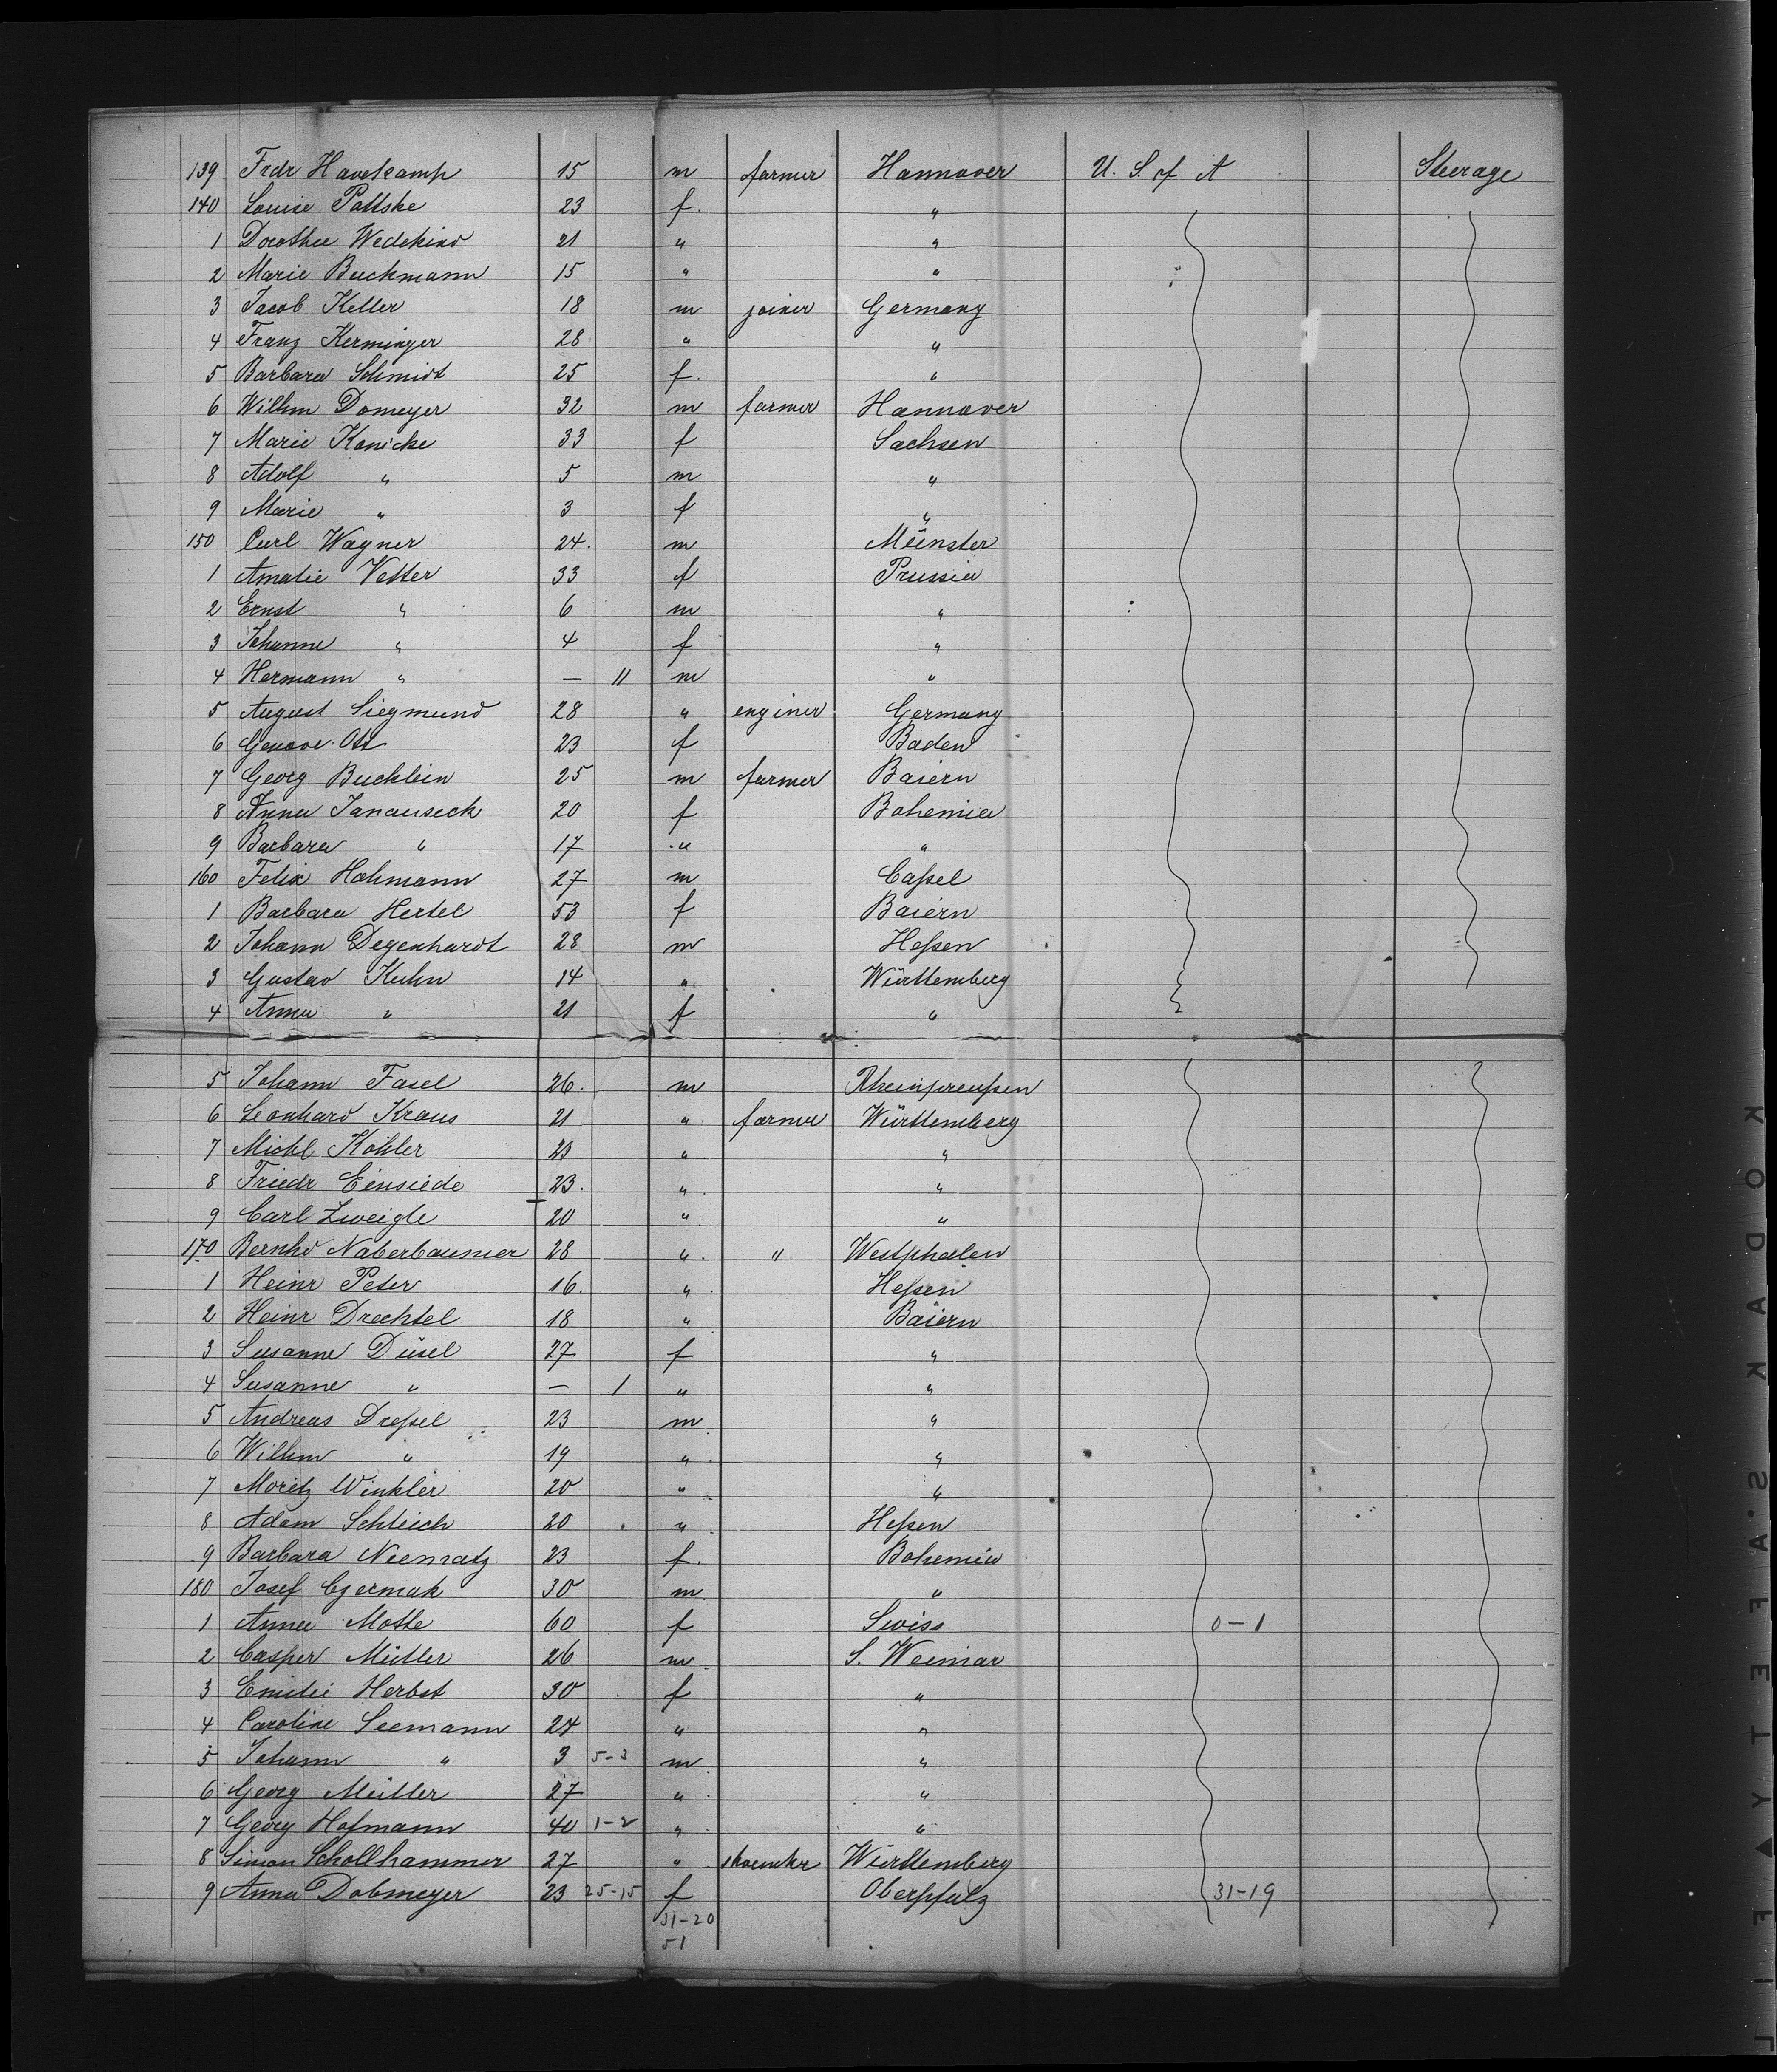 139 Frdr Havekamp 15 m farmer Hannover U. S. of A Steerage
140 Louise Pattske 23 f. "
1 Dorothee Wedekind 21 " "
2 Marie Buckmann 15 " "
3 Jacob Keller 18 m joiner Germany
4 Franz Kerminger 28 " "
5 Barbara Schmidt 25 f. "
6 Willm Domeyer 32 m farmer Hannover
7 Marie Konicke 33 f Sachsen
8 Adolf " 5 m "
9 Marie " 3 f "
150 Carl Wagner 24. m Münster
1 Amalie Vetter 33 f Prussia
2 Ernst " 6 m "
3 Johanne " 4 f "
4 Hermann " — 11 m "
5 August Siegmund 28 " enginer Germany
6 Genove. Ott 23 f Baden
7 Georg Bucklein 25 m farmer Baiern
8 Anna Janauseck 20 f Bohemia
9 Barbara " 17 " "
160 Felix Hohmann 27 m Caſsel
1 Barbara Hertel 53 f Baiern
2 Johann Degenhardt 28 m Heſsen
3 Gustav Kuhn 14 " Württemberg
4 Anna " 21 f "
5 Johann Fasel 26. m Rheinpreuſsen
6 Leonhard Kraus 21 " farmer Württemberg
7 Michl Köhler 23 " "
8 Friedr Einsiede 23. " "
9 Carl Zweigle 20 " "
170 Bernhd Naberbaumer 28 " " Westphalen
1 Heinr Peter 16. " Heſsen
2 Heinr Drechtel 18 " Baiern
3 Susanne Düsel 27 f "
4 Susanne " — 1 " "
5 Andreas Dreſsel 23 m "
6 Willm " 19 " "
7 Moritz Winkler 20 " "
8 Adam Schleich 20 " Heſsen
9 Barbara Neematz 23 f. Bohemia
180 Josef Czermak 30 m "
1 Anna Motte 60 f Swiss 0-1
2 Casper Müller 26 m S. Weimar
3 Emilie Herbst 30 f "
4 Caroline Seemann 24 " "
5 Johann " 3 5-3 m "
6 Georg Müller 27 " "
7 Georg Hofmann 40 1-2 " "
8 Simon Schollhammer 27 " shoemkr Württemberg
9 Anna Dobmeyer 23 25-15 f Oberpfalz 31-19
31-20
51
KODAK S'AFETY FIL